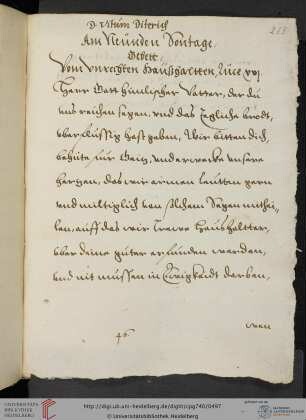 D. Vitum Diterich
Am Neunden Sontage
Gebett
Vom vnrechten Haußhaltten, Luce, xvj.
Herr Gott himlischer Vatter, der du
vns reichen segen, vnd das Tegliche brodt,
vberflüssig hast geben, Wir bitten dich,
behüte für Geitz, vnd erwecke vnsere
hertzen, das wir armen leutten gern
vnd miltiglich von solchem Segen mitthei-
len, auff das wir Trewe Haushaltter,
vber deine güter erfunden werden,
vnd nit müssen in Ewigkeidt darben,
wan
http://digi.ub.uni-heidelberg.de/diglit/cpg740/0497
© Universitätsbibliothek Heidelberg
UNIVERSITÄTS-
BIBLIOTHEK
HEIDELBERG